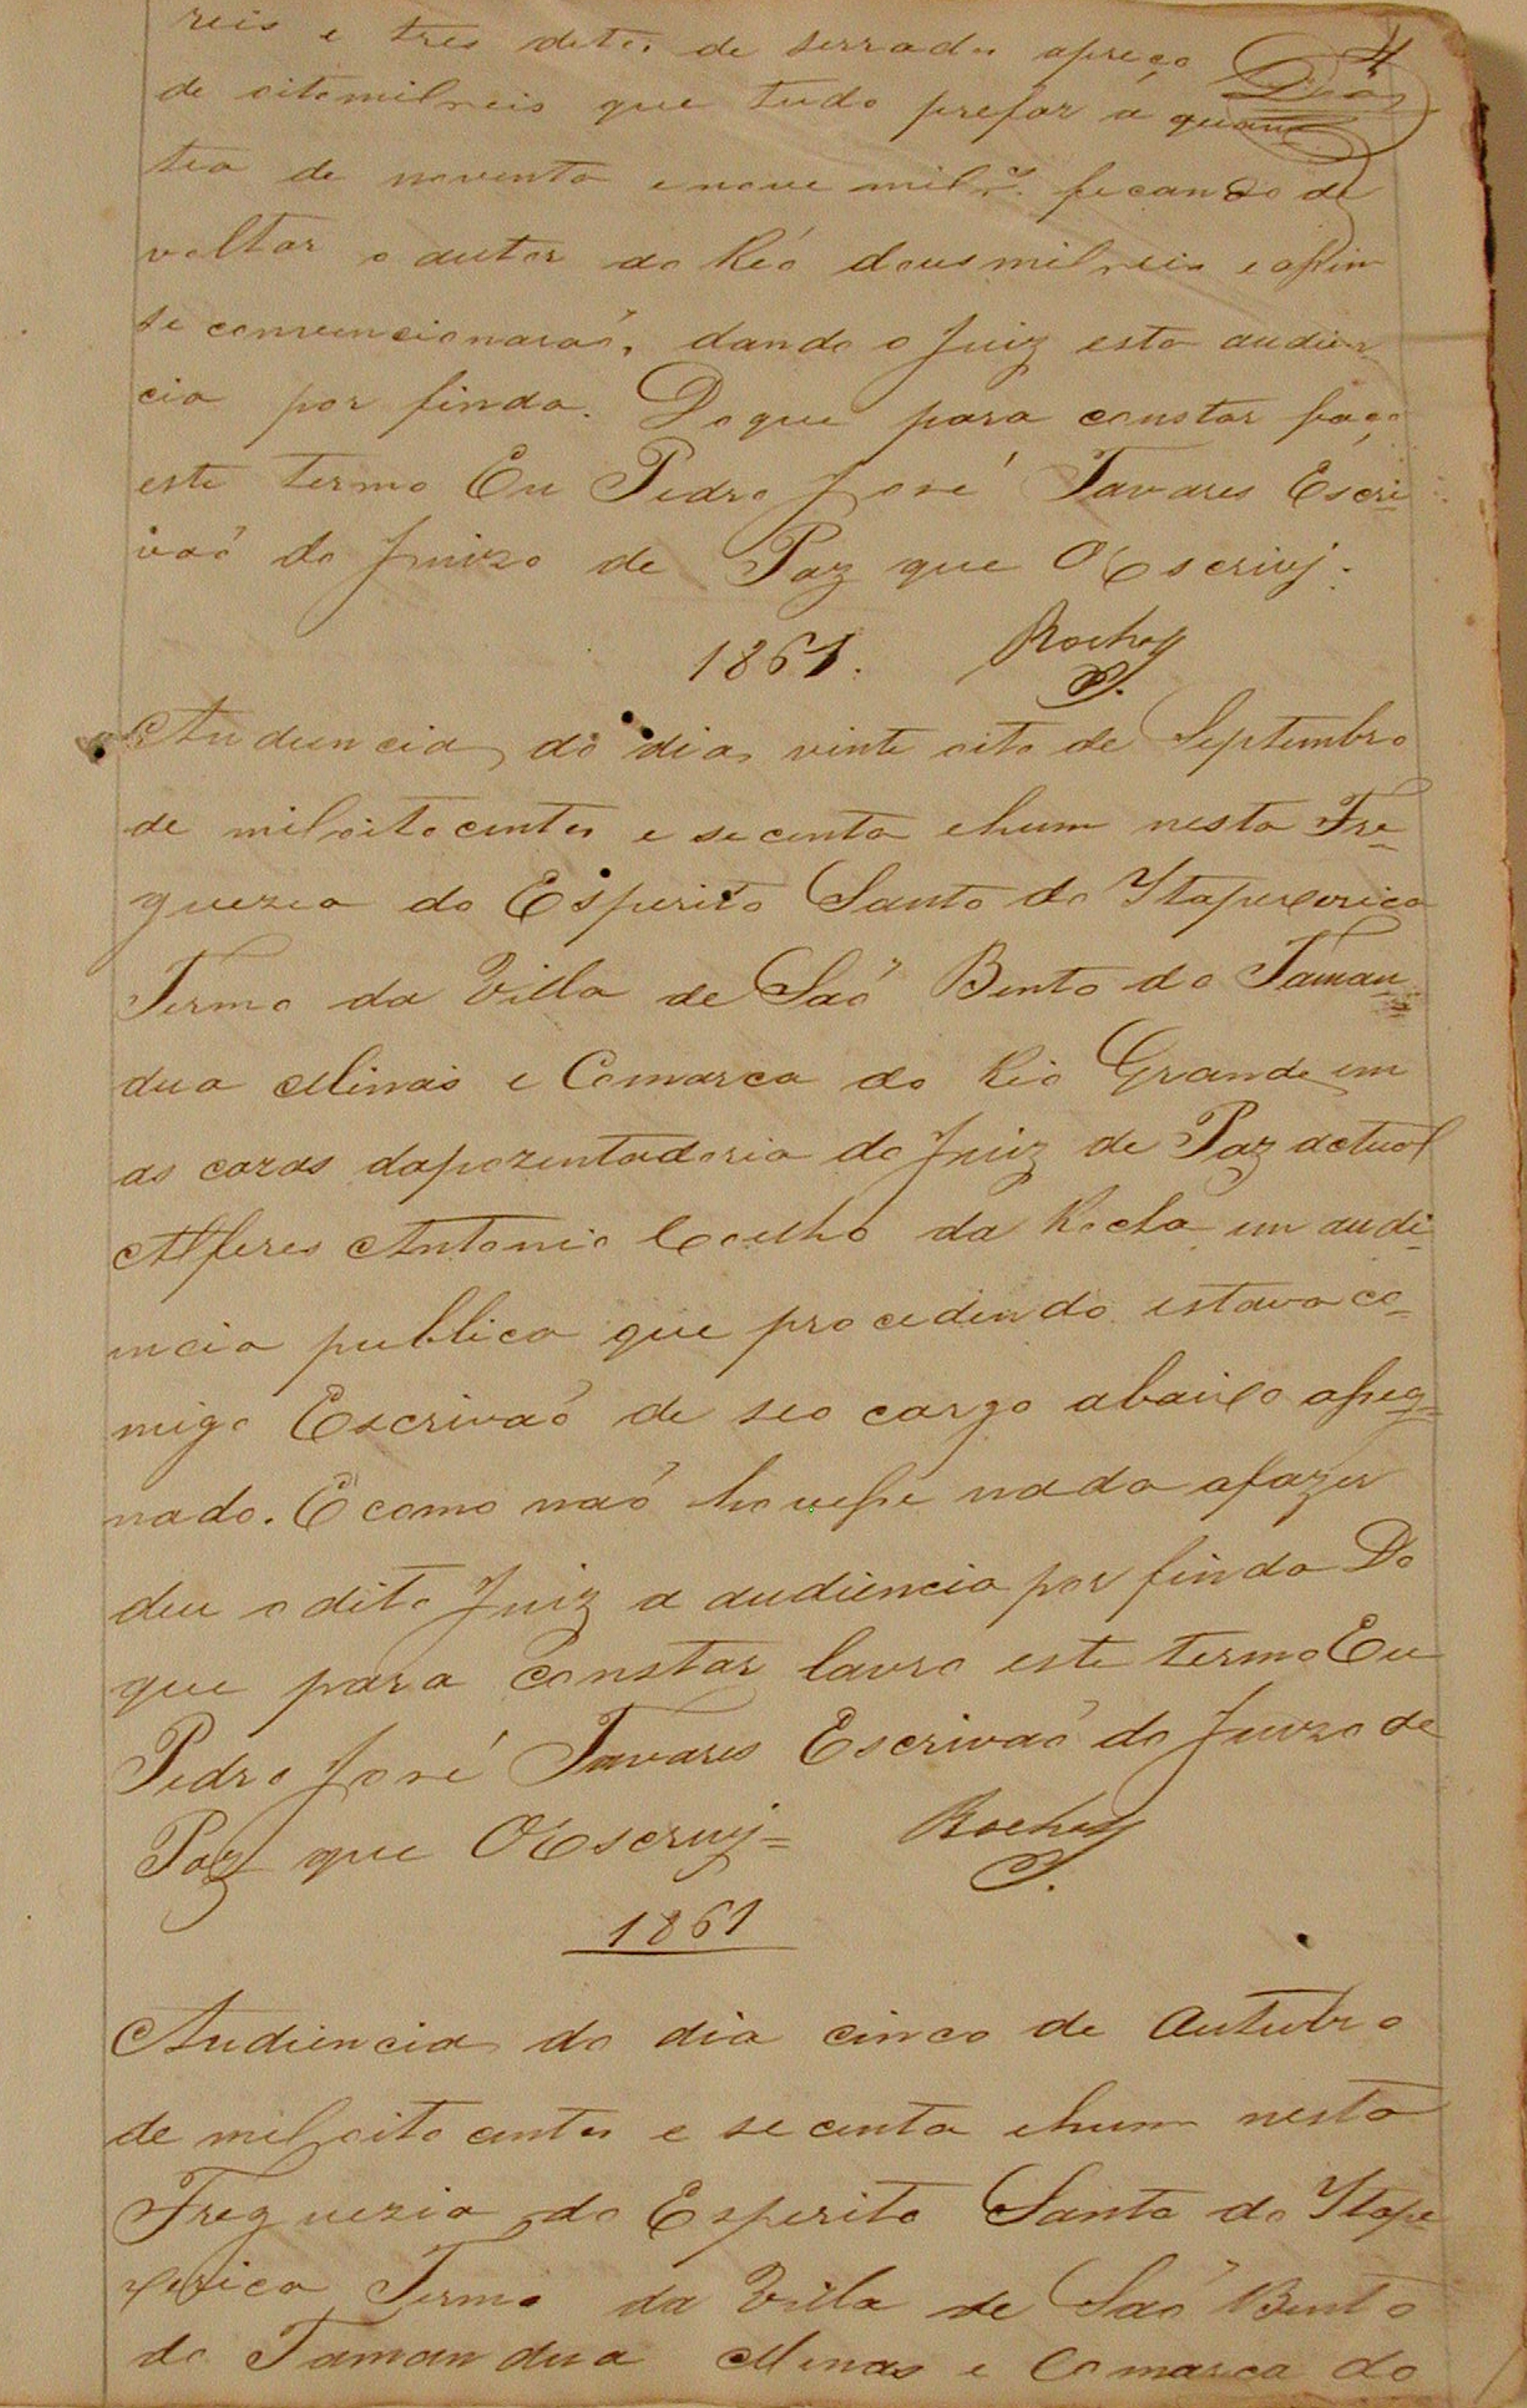 4
reis e tres ditos de serrados apreço
de oitomilreis que tudo prefas a quan
tia de noventa enove mil rs. ficando de
voltar o autor ao Reó dousmilreis e assim
se convencionaraó, dando o Juiz esta audien
cia por finda. Doque para constar faço
este termo Eu Pedro José Tavares Escri
vaó do Juizo de Paz que OEscrivj.
1861. Rocha
Audiencia do dia vinte oito de Septembro
de miloitocentos e secenta ehum nesta Fre
guezia do Esperito Santo do Itapecerica
Termo da Villa de Saó Bento do Taman
dua Minas e Comarca do Rio Grande em
as cazas dapozentadoria do Juiz de Paz actual
Alferes Antonio Coelho da Rocha em audi
encia publica que procedendo estava co
migo Escrivaó de seo cargo abaixo assig
nado. E como naó houvesse nada afazer
deu o dito Juiz a audiencia por finda Do
que para constar lavro este termo Eu
Pedro José Tavares Escrivaó do Juizo de
Paz que OEscrivj= Rocha
1861
Audiencia do dia cinco de Outubro
de miloitocentos e secenta ehum nesta
Freguezia do Esperito Santo do Itape
cerica Termo da Villa de Saó Bento
do Tamandua Minas e Comarca do